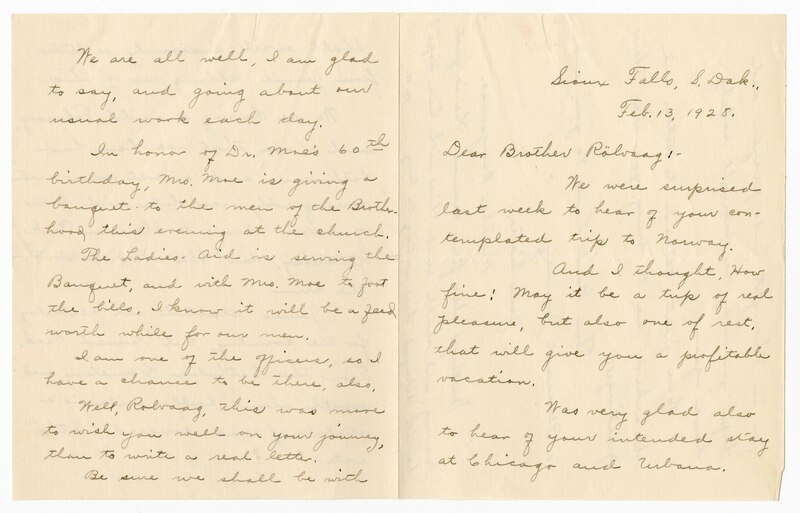 Sioux Falls, S. Dak.,
Feb. 13, 1928.
Dear Brother Rölvaag:-
We were surprised
last week to hear of your con-
templated trip to Norway.
And I thought, How
fine! May it be a trip of real
pleasure, but also one of rest,
that will give you a profitable
vacation.
Was very glad also
to hear of your intended stay
at Chicago and Urbana.
We are all well, I am glad
to say, and going about our
usual work each day.
In honor of Dr. Moe's 60th
birthday, Mrs. Moe is giving a
banquet to the men of the Brother-
hood this evening at the church.
The Ladies Aid is serving the
Banquet, and with Mrs. Moe to foot
the bills, I know it will be a feed
worth while for our men.
I am one of the officers, so I
have a chance to be there, also.
Well, Rolvaag, this was more
to wish you well on your journey,
than to write a real letter.
Be sure we shall be with